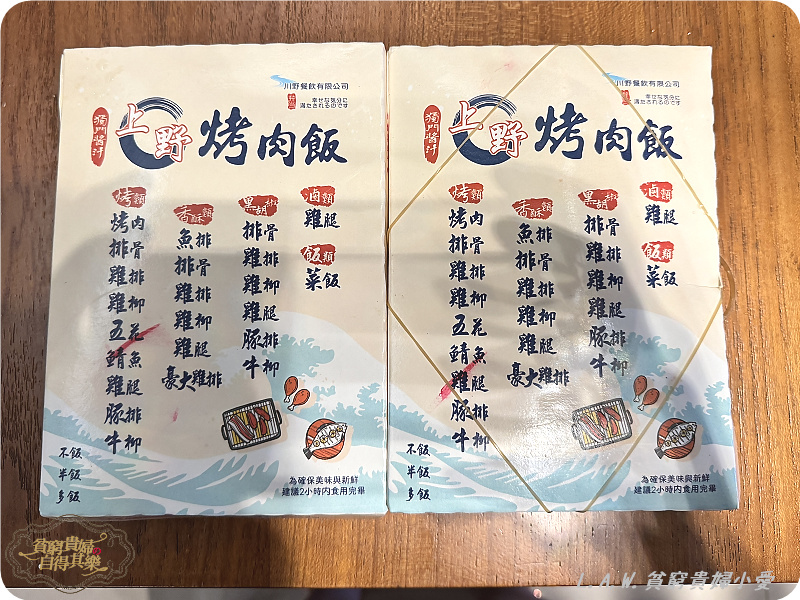 川野餐飲有限公司
幸せな気分に
満たされるのです
獨門醬汁
上野烤肉飯
烤類
烤肉
排骨
雞排
雞柳
五花
鯖魚
雞腿
豚排
牛柳
香酥類
魚排
排骨
雞排
雞柳
雞腿
豪大雞排
黑胡椒
排骨
雞排
雞柳
雞腿
豚排
牛柳
滷類
雞腿
飯類
菜飯
不飯
半飯
多飯
為確保美味與新鮮
建議2小時内食用完畢
川野餐飲有限公司
幸せな気分に
満たされるのです
獨門醬汁
上野烤肉飯
烤類
烤肉
排骨
雞排
雞柳
五花
鯖魚
雞腿
豚排
牛柳
香酥類
魚排
排骨
雞排
雞柳
雞腿
豪大雞排
黑胡椒
排骨
雞排
雞柳
雞腿
豚排
牛柳
滷類
雞腿
飯類
菜飯
不飯
半飯
多飯
為確保美味與新鮮
建議2小時内食用完畢
貧窮貴婦
自得其樂
I . A .W. 貧窮貴婦小愛